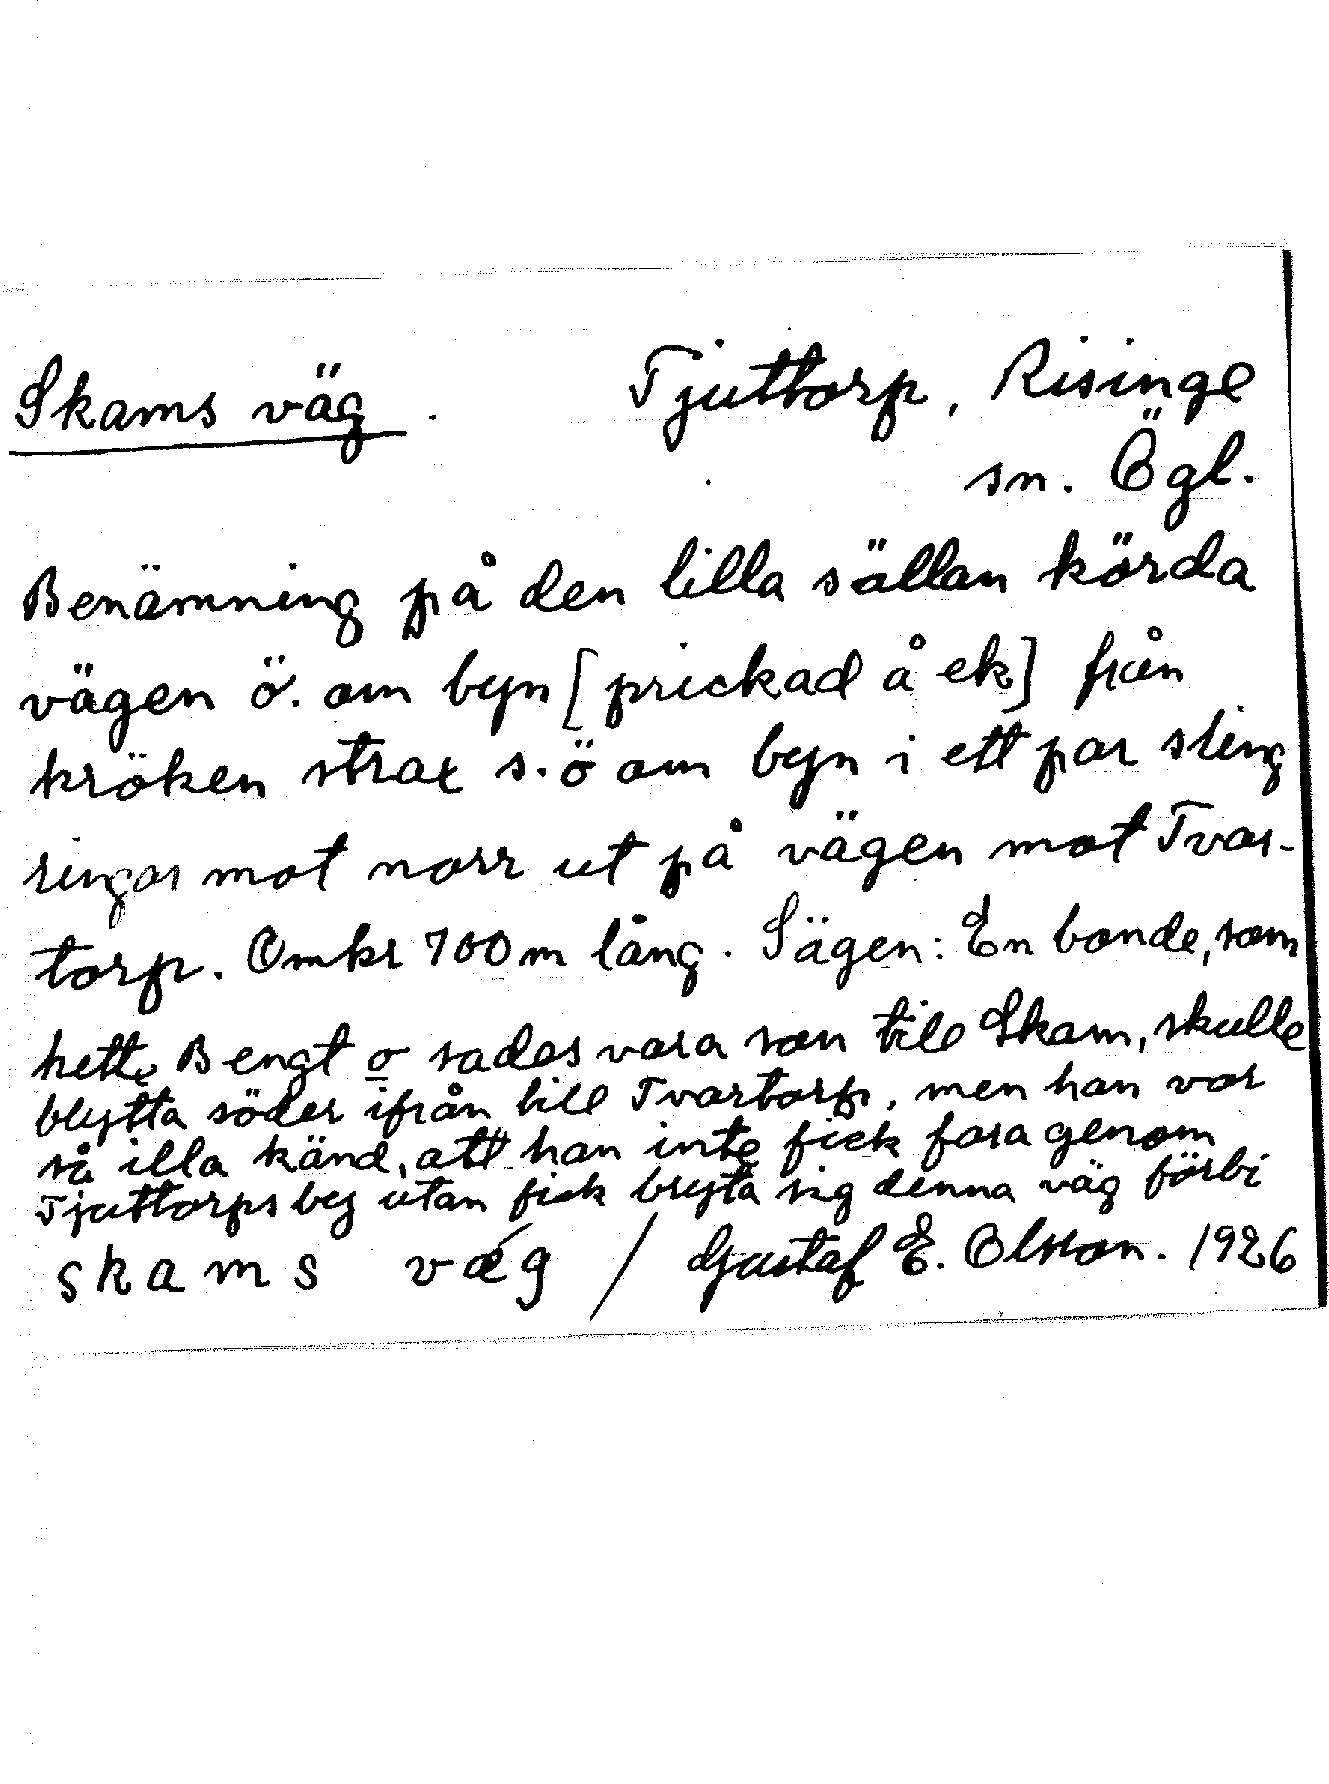 Skams väg. Tjuttorp, Risinge
sn. Ögl.
Benämning på den lilla sällan körda
vägen ö. om byn [prickad å ek] från
kröken strax s.ö om byn i ett par sling
ringar mot norr ut på vägen mot Tvar-
torp. Omkr 700 m lång. Sägen: En bonde, som
hette Bengt o sades vara son till Skam, skulle
blytta söder ifrån till Tvartorp, men han var
så illa känd, att han inte fick fara genom
Tjuttorps by utan fick bryta sig denna väg förbi
skams væ´g / Gustaf E. Olsson. 1926